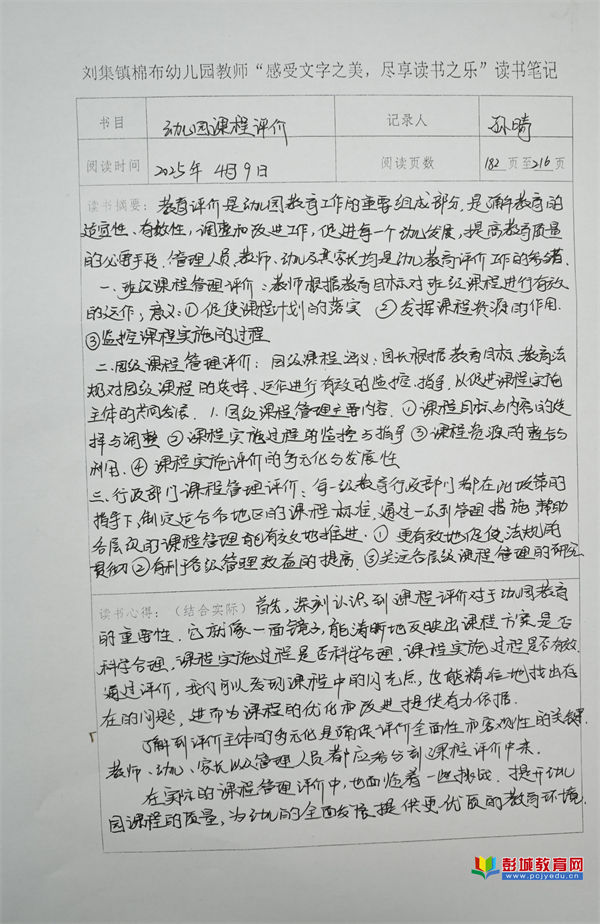 刘集镇棉布幼儿园教师“感受文字之美，尽享读书之乐”读书笔记
书目 幼儿园课程评价 记录人 孙晴
阅读时间 2025年4月9日 阅读页数 182页至216页
读书摘要：教育评价是幼儿园教育工作的重要组成部分，是了解教育的
适宜性、有效性，调整和改进工作，促进每一个幼儿发展，提高教育质量
的必要手段。管理人员、教师、幼儿及其家长均是幼儿教育评价工作的参与者。
一、班级课程管理评价：教师根据教育目标对班级课程进行有效
的运作，意义：①促使课程计划的落实 ②发挥课程资源的作用.
③监控课程实施的过程
二.园级课程管理评价：园级课程涵义：园长根据教育目标、教育法
规对园级课程的选择、运作进行有效的监控、指导，以促进课程实施
主体的共同发展. 1.园级课程管理主要内容.①课程目标与内容的选
择与调整 ②课程实施过程的监控与指导 ③课程资源的整合与
利用.④课程实施评价的多元化与发展性
三.行政部门课程管理评价：每一级教育行政部门都在此政策的
指导下,制定适合各地区的课程标准，通过一系列管理措施，帮助
各层次的课程管理能有效地推进.①更有效地促使法规的
贯彻 ②有利于各级管理效益的提高.③关注各层级课程管理的研究
读书心得：（结合实际）首先，深刻认识到课程评价对于幼儿园教育
的重要性.它就像一面镜子,能清晰地反映出课程方案是否
科学合理.课程实施过程是否科学合理.课程实施过程是否有效.
通过评价，我们可以发现课程中的闪光点，也能精准地找出存
在的问题，进而为课程的优化和改进提供有力依据.
了解到评价主体的多元化是确保评价全面性和客观性的关键.
教师、幼儿、家长以及管理人员都应参与到课程评价中来.
在实际的课程管理评价中,也面临着一些挑战.提升幼儿
园课程的质量，为幼儿的全面发展提供更优质的教育环境.
彭城教育网
www.pcjyedu.cn